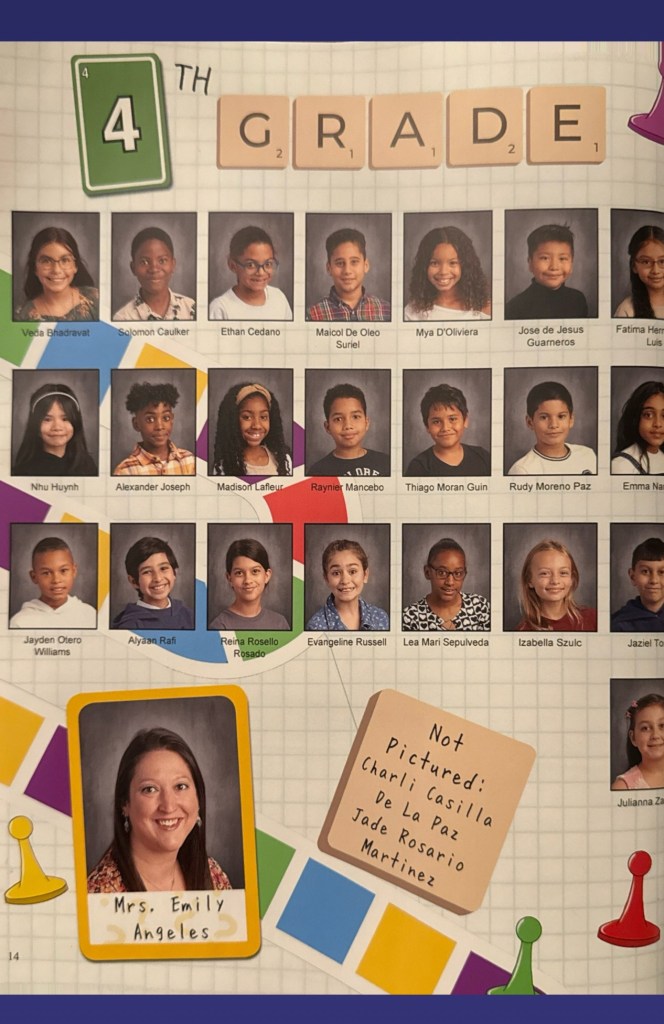 4
4
TH
G R A D E
2 1 1 2 1
Veda Bhadravat Solomon Caulker Ethan Cedano Maicol De Oleo Suriel Mya D'Oliviera Jose de Jesus Guarneros Fatima Luis
Nhu Huynh Alexander Joseph Madison Lafleur Raynier Mancebo Thiago Moran Guin Rudy Moreno Paz Emma
Jayden Otero Williams Alyaan Rafi Reina Rosello Rosado Evangeline Russell Lea Mari Sepulveda Izabella Szulc Jaziel
Julianna
Not
Pictured:
Charli Casilla
De La Paz
Jade Rosario
Martinez
Mrs. Emily
Angeles
14